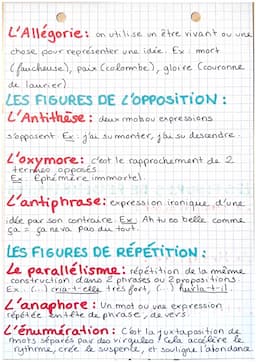 L'Allégorie : on utilise un être vivant ou une
chose pour représenter une idée. Ex : mort
(faucheuse), paix (colombe), gloire (couronne
de laurier).
LES FIGURES DE L'OPPOSITION :
L'Antithèse : deux mots ou expressions
s'opposent Ex : j'ai su monter, j'ai su descendre.
L'oxymore : c'est le rapprochement de 2
termes opposés.
Ex : Ephémère immortel.
L'antiphrase : expression ironique, d'une
idée par son contraire. Ex : Ah tu es belle comme
ça = ça ne va pas du tout.
LES FIGURES DE RÉPÉTITION :
Le parallélisme : répétition de la même
construction dans 2 phrases ou 2 propositions
Ex : (...) cria-t-elle très fort, (...) hurla-t-il.
L'anaphore : Un mot ou une expression
répétée en tête de phrase, de vers.
L'énumération : C'est la juxtaposition de
mots séparés par des virgules. Cela accélère le
rythme, crée le suspense, et souligne l'abondance.